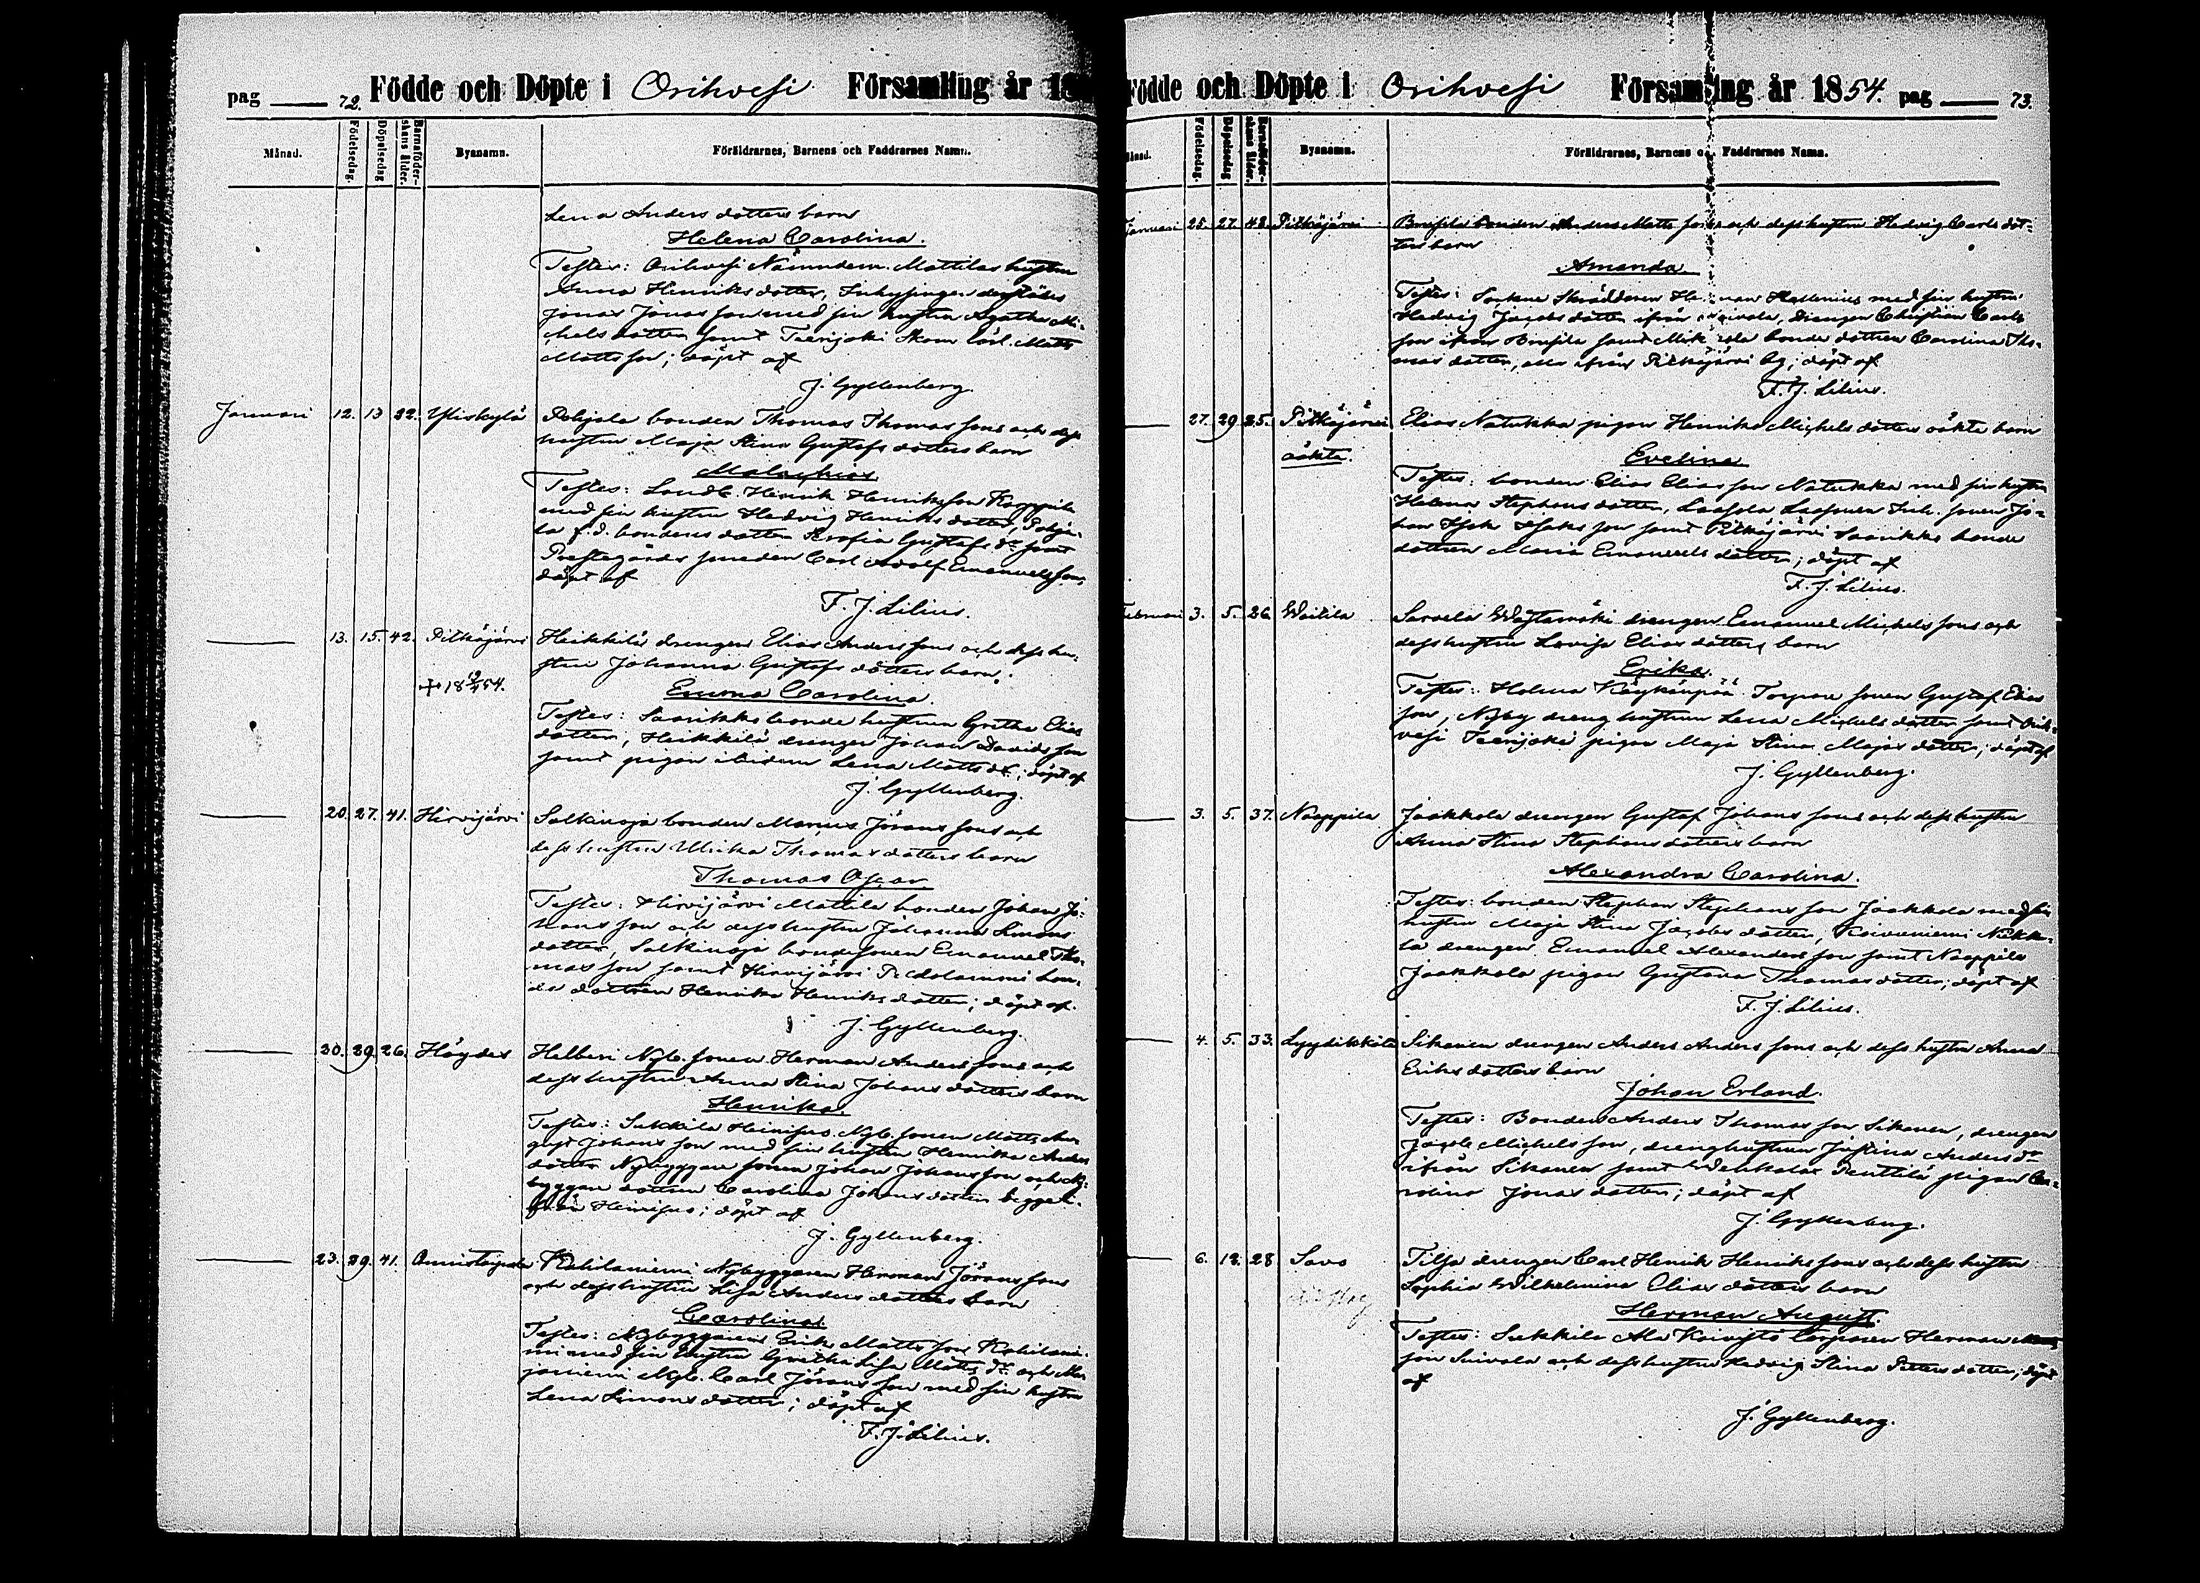 pag 72. Födde och Döpte i Orihvesi Församling år 18
Månad. Födelsedag. Döpelsedag Barnaföder-skans ålder. Bynamn. Föräldrarnes, Barnens och Faddrarnes Namn.
Lena Anders dotters barn
Helena Carolina.
Testes: Orihvesi Nämndem. Mattilas hustru
Anna Henriks dotter, Inhysingen
Jonas Jonas son med sin hustru Agatha Mi-
chels dotter samt Teerijoki Skom. lärl. Matts
Matts son; döpt af
J. Gyllenberg.
Januari 12. 13 22. Yliskylä Pohjala bonden Thomas Thomas sons och dess
hustru Maja Stina Gustafs dotters barn
Malachias
Testes: Landb. Henrik Henriksson Kaappila
med sin hustru Hedvig Henriks dotter, Pohja-
la f. d. bondens dotter Sofia Gustafs dr samt
Prestegårds smeden Carl Adolf Emanuelsson,
döpt af
F. J. Lilius.
13. 15. 42. Pitkäjärvi Heikkilä drengen Elias Anders sons och dess hu-
stru Johanna Gustafs dotters barn.
+ 18 12/4 54.
Emma Carolina.
Testes: Saarikko bonde hustrun Gretha Elias
dotter, Heikkilä drengen Johan Davids son
samt pigan ibidem Lena Matts dr; döpt af
J. Gyllenberg.
20. 27. 41. Hirvijärvi Solkinoja bonden Marcus Jörans sons och
dess hustru Ulrika Thomas dotters barn
Thomas Oscar
Testes: Hirvijärvi Mattila bonden Johan Jo-
hans son och dess hustru Johanna Simons
dotter, Solkinoja bondesonen Emanuel Tho-
mas son samt Hirvijärvi bon-
de dottren Henrika Henriks dotter; döpt af
J. Gyllenberg.
20. 29. 26. Höydes Helberi Nyb. sonen Herman Anders sons och
dess hustru Anna Stina Johans dotters barn
Henrika.
Testes: Sukkila Heinijus Nyb. sonen Matts Au-
gust Johans son med sin hustru Henrika Anders
dotter Nybyggare sonen Johan Johansson och Ny-
byggare dottren Carolina Johans dotter begge i-
från Heinijus; döpt af
J. Gyllenberg.
23. 29. 41. Onnistaipale Kahilaniemi Nybyggaren Herman Jörans sons
och dess hustru Lisa Anders dotters barn
Carolina
Testes: Nybyggaren Erik Matts son Kahilanie-
mi med sin hustru Gretha Lisa Matts dr och Mar-
janiemi Nyb. Carl Jörans son med sin hustru
Lena Simons dotter; döpt af
F. J. Lilius.
Födde och Döpte i Orihvesi Församling år 1854. pag 73.
Månad. Födelsedag. Döpelsedag Barnaföder-skans ålder. Bynamn. Föräldrarnes, Barnens och Faddrarnes Namn.
Januari 25. 27. 42. Pitkäjärvi Brusila bonden Anders Matts sons och dess hustru Hedvig Carls dot-
ters barn
Amanda.
Testes: Sockne Skräddaren Herman Hellenius med sin hustru
Hedvig Jacobs dotter ifrån drengen Christian Carls
son ifrån Brusila samt bonde dottren Carolina Tho-
mas dotter, alla ifrån Pitkäjärvi by; döpt af
F. J. Lilius.
27. 29. 25. Pitkäjärvi Elias Natukka pigan Henrika Michels dotters oäkta barn
oäkta.
Evelina
Testes: bonden Elias Elias son Natukka med sin hustru
Helena Stephans dotter, Laasola Laasonen Inh. sonen Jo-
han Isak Isaks son samt Pitkäjärvi Saarikko bonde
dottren Maria Emanuels dotter; döpt af
F. J. Lilius.
Februari 3. 5. 26 Weitila Sarvela Wästamäki drengen Emanuel Michels sons och
dess hustru Lovisa Elias dotters barn
Erika.
Testes: Holma Käykänpää Torpare sonen Gustaf Elias
son, Nyby dreng hustrun Lena Michels dotter samt Orih-
vesi Teerijoki pigan Maja Stina Majas dotter; döpt af
J. Gyllenberg.
3. 5. 37. Naappila Jaakkola drengen Gustaf Johans sons och dess hustru
Anna Stina Stephans dotters barn
Alexandra Carolina.
Testes: bonden Stephan Stephans son Jaakkola med sin
hustru Maja Stina Jacobs dotter, Koivuniemi Nikki-
la drengen Emanuel Alexanders son samt Naappila
Jaakkola pigan Gustava Thomas dotter; döpt af
F. J. Lilius.
4. 5. 33. Lyydikkälä Sikanen drengen Anders Anders sons och dess hustru Anna
Eriks dotters barn
Johan Erland.
Testes: Bonden Anders Thomas son Sikanen, drengen
Jacob Michels son, drenghustrun Justina Anders dr
ifrån Sikanen samt Wehkalax Penttilä pigan Ca-
rolina Jonas dotter; döpt af
J. Gyllenberg.
6. 12. 28 Savo Tilsa drengen Carl Henrik Henriks sons och dess hustru
Sophia Wilhelmina Elias dotters barn
Herman August.
Testes: Sukkila Ala Koivisto Torparen Herman
son Suivala och dess hustru Hedvig Stina Petters dotter; döpt
af
J. Gyllenberg.